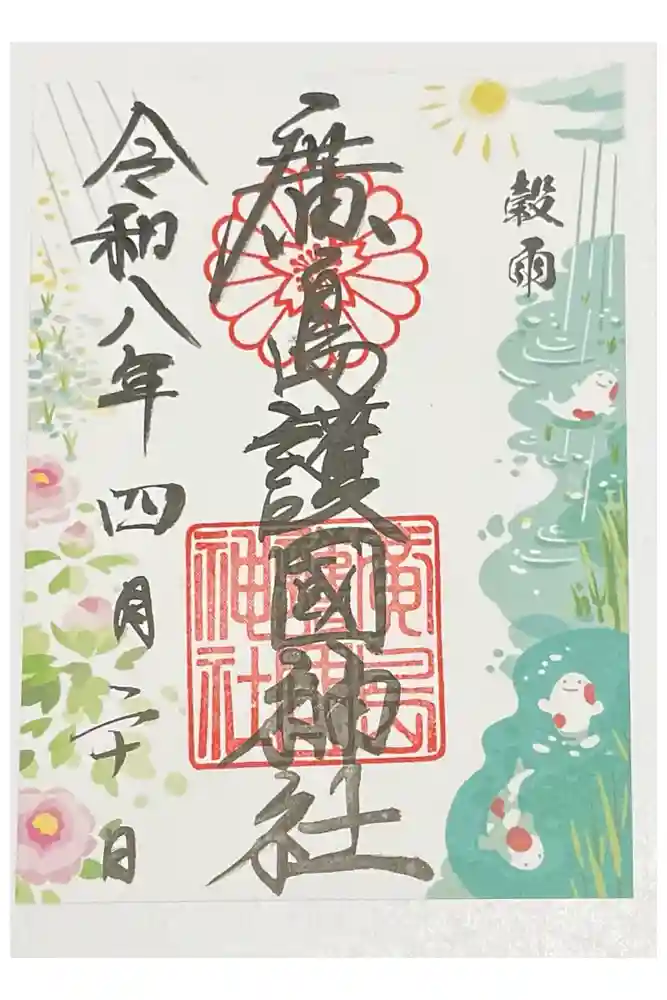 穀雨
廣島護國神社
廣島護國神社
令和八年四月二十日